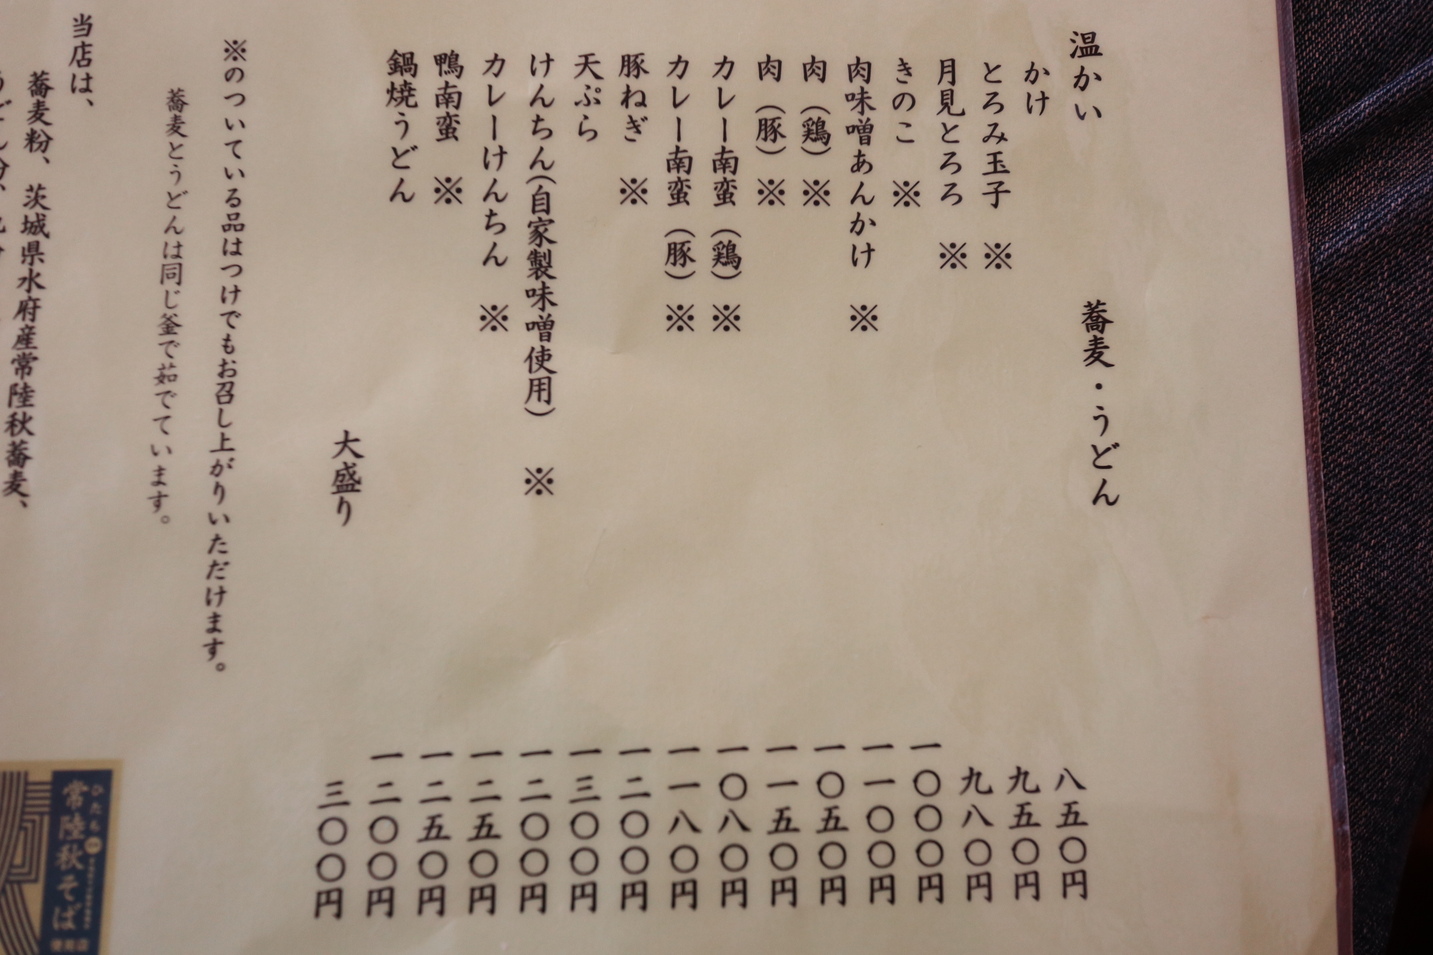 温かい 蕎麦・うどん
かけ 八五〇円
とろみ玉子 ※ 九五〇円
月見とろろ ※ 九八〇円
きのこ ※ 一〇〇〇円
肉味噌あんかけ ※ 一一〇〇円
肉（鶏）※ 一〇五〇円
肉（豚）※ 一一五〇円
カレー南蛮（鶏）※ 一〇八〇円
カレー南蛮（豚）※ 一一八〇円
豚ねぎ ※ 一二〇〇円
天ぷら 一三〇〇円
けんちん(自家製味噌使用) ※ 一二〇〇円
カレーけんちん ※ 一二五〇円
鴨南蛮 ※ 一二五〇円
鍋焼うどん 一二〇〇円
大盛り 三〇〇円
※のついている品はつけでもお召し上がりいただけます。
蕎麦とうどんは同じ釜で茹でています。
当店は、
蕎麦粉、茨城県水府産常陸秋蕎麦、
ひたち
常陸秋そば